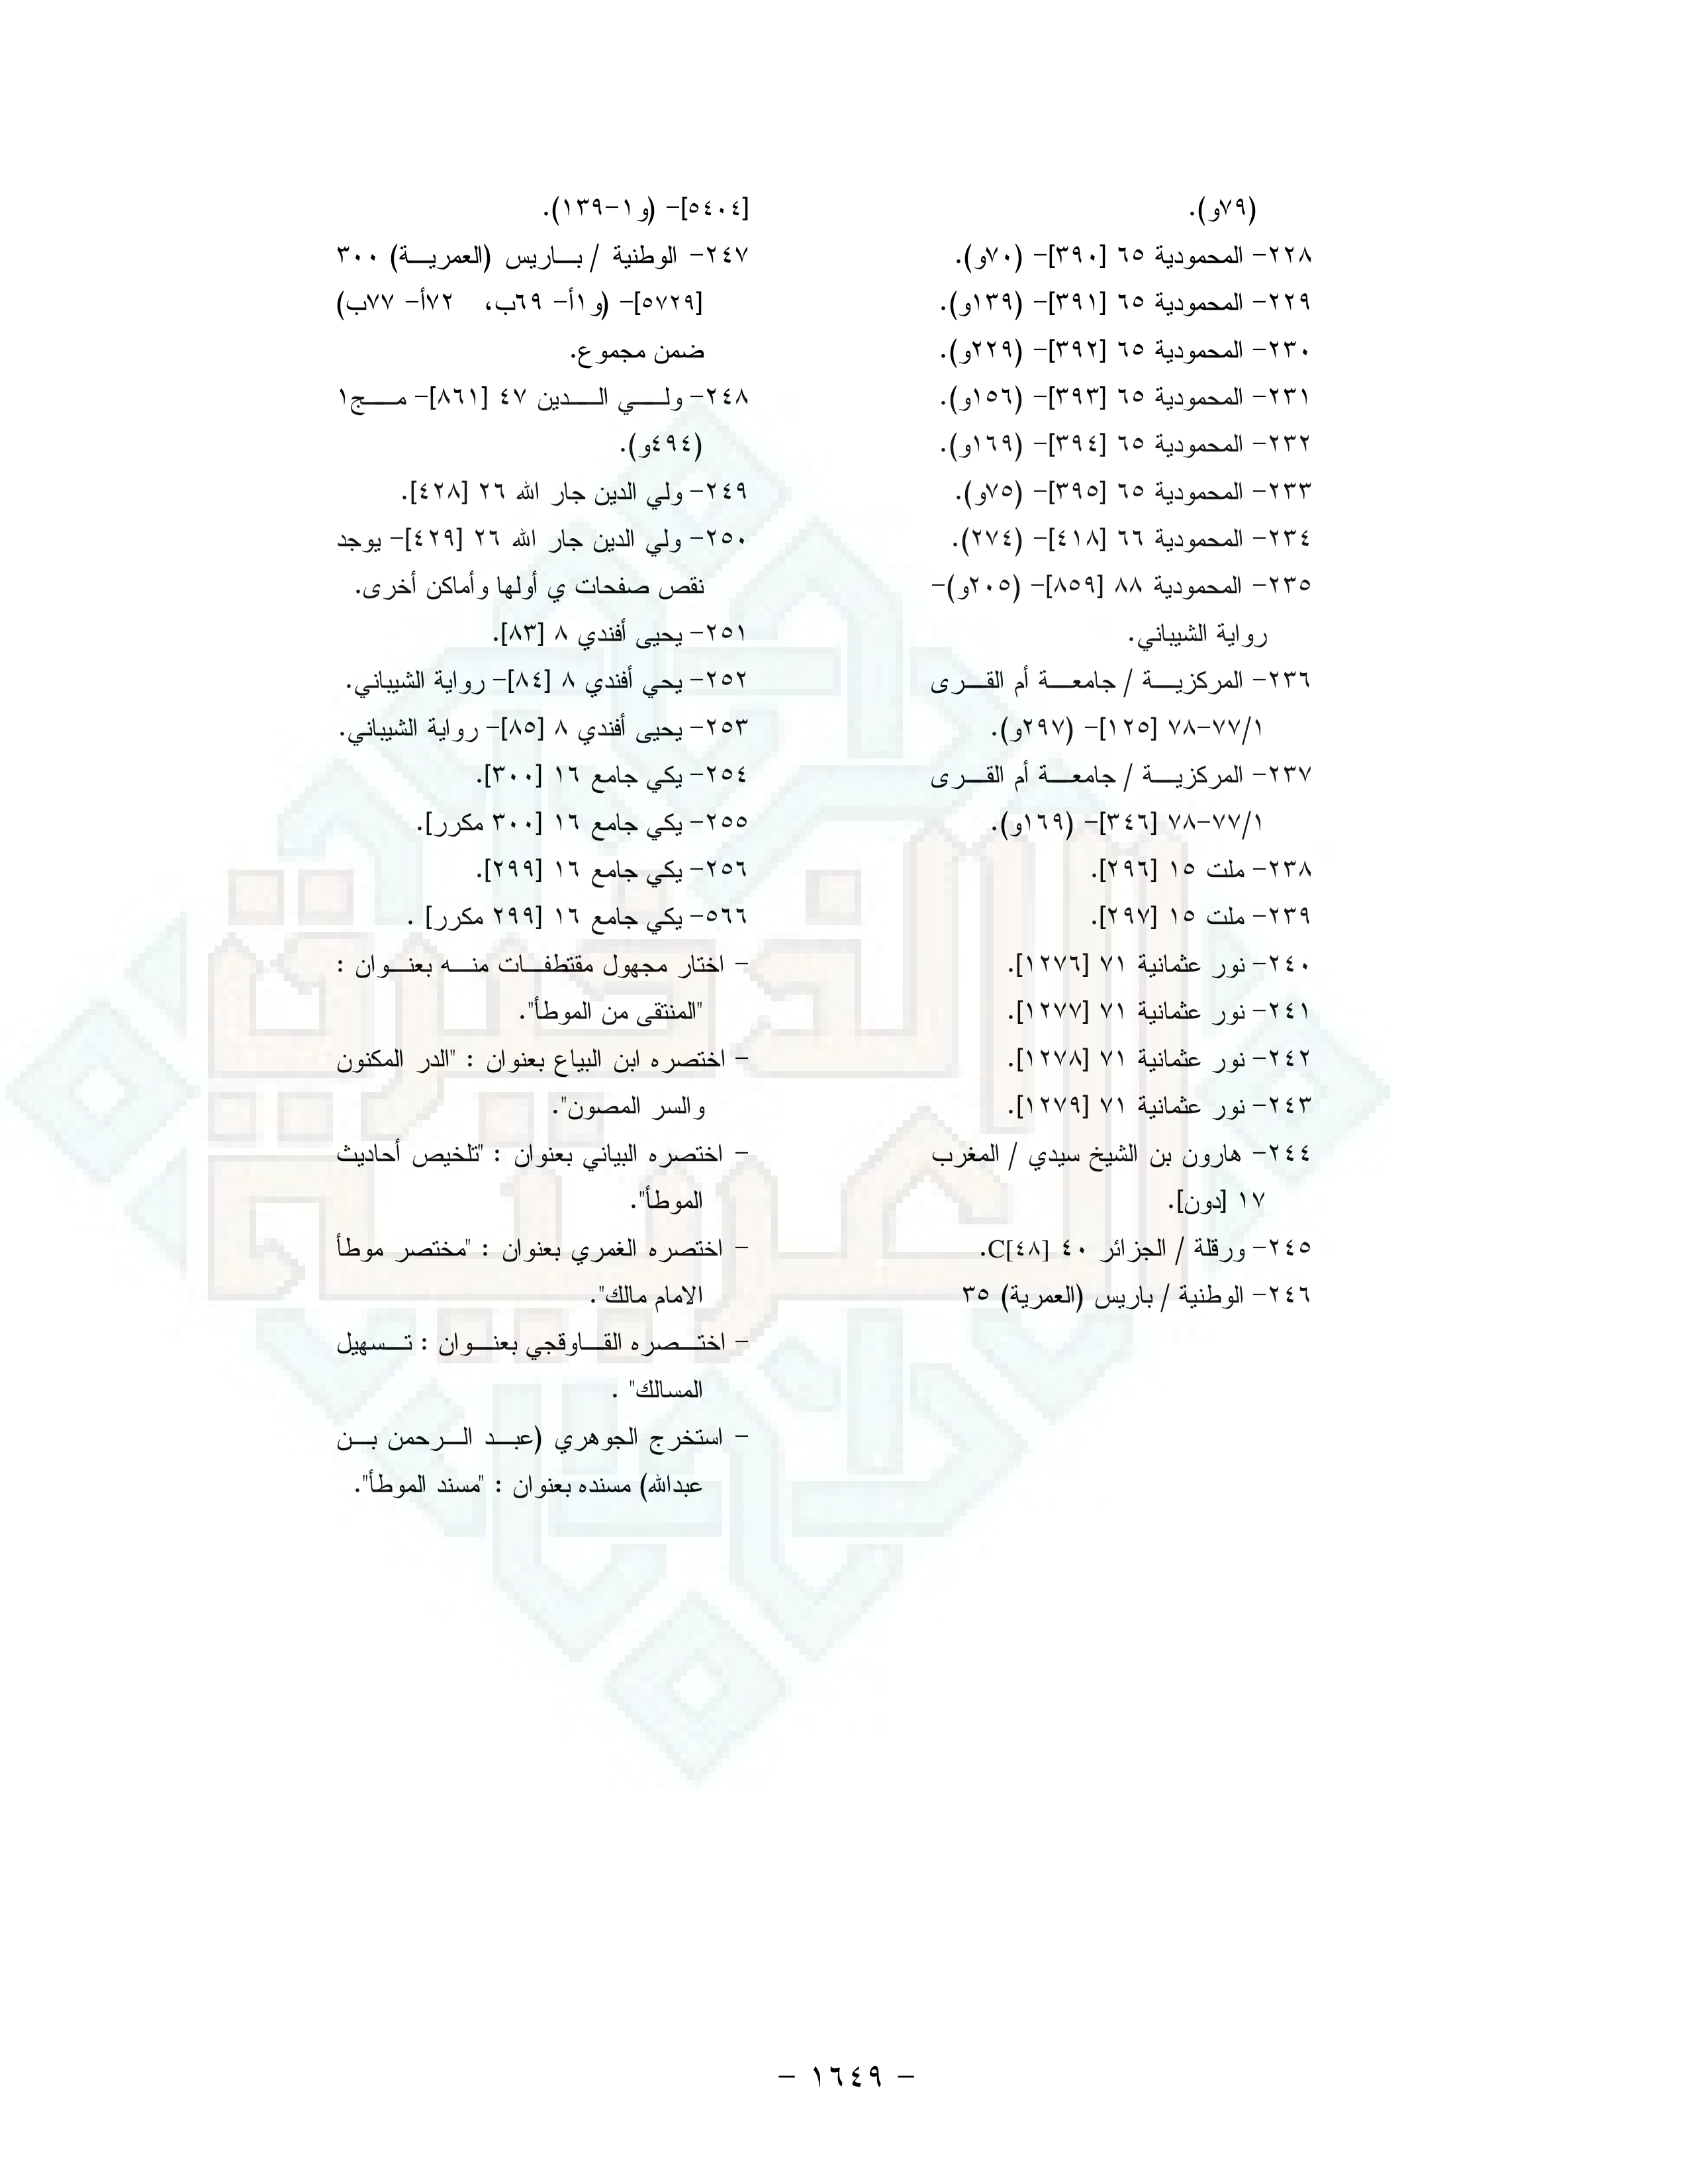 (٧٩و).
٢٢٨- المحمودية ٦٥ [٣٩٠]- (٧٠و).
٢٢٩- المحمودية ٦٥ [٣٩١]- (١٣٩و).
٢٣٠- المحمودية ٦٥ [٣٩٢]- (٢٢٩و).
٢٣١- المحمودية ٦٥ [٣٩٣]- (١٥٦و).
٢٣٢- المحمودية ٦٥ [٣٩٤]- (١٦٩و).
٢٣٣- المحمودية ٦٥ [٣٩٥]- (٧٥و).
٢٣٤- المحمودية ٦٦ [٤١٨]- (٢٧٤).
٢٣٥- المحمودية ٨٨ [٨٥٩]- (٢٠٥و)-
رواية الشيباني.
٢٣٦- المركزيــة / جامعــة أم القــرى
١/٧٧-٧٨ [١٢٥]- (٢٩٧و).
٢٣٧- المركزيــة / جامعــة أم القــرى
١/٧٧-٧٨ [٣٤٦]- (١٦٩و).
٢٣٨- ملت ١٥ [٢٩٦].
٢٣٩- ملت ١٥ [٢٩٧].
٢٤٠- نور عثمانية ٧١ [١٢٧٦].
٢٤١- نور عثمانية ٧١ [١٢٧٧].
٢٤٢- نور عثمانية ٧١ [١٢٧٨].
٢٤٣- نور عثمانية ٧١ [١٢٧٩].
٢٤٤- هارون بن الشيخ سيدي / المغرب
١٧ [دون].
٢٤٥- ورقلة / الجزائر ٤٠ [٤٨]C.
٢٤٦- الوطنية / باريس (العمرية) ٣٥
[٥٤٠٤]- (و١-١٣٩).
٢٤٧- الوطنية / بــاريس (العمريــة) ٣٠٠
[٥٧٢٩]- (و١أ- ٦٩ب، ٧٢أ- ٧٧ب)
ضمن مجموع.
٢٤٨- ولــي الــدين ٤٧ [٨٦١]- مــج١
(٤٩٤و).
٢٤٩- ولي الدين جار الله ٢٦ [٤٢٨].
٢٥٠- ولي الدين جار الله ٢٦ [٤٢٩]- يوجد
نقص صفحات ي أولها وأماكن أخرى.
٢٥١- يحيى أفندي ٨ [٨٣].
٢٥٢- يحي أفندي ٨ [٨٤]- رواية الشيباني.
٢٥٣- يحيى أفندي ٨ [٨٥]- رواية الشيباني.
٢٥٤- يكي جامع ١٦ [٣٠٠].
٢٥٥- يكي جامع ١٦ [٣٠٠ مكرر].
٢٥٦- يكي جامع ١٦ [٢٩٩].
٥٦٦- يكي جامع ١٦ [٢٩٩ مكرر] .
- اختار مجهول مقتطفــات منــه بعنــوان :
"المنتقى من الموطأ".
- اختصره ابن البياع بعنوان : "الدر المكنون
والسر المصون".
- اختصره البياني بعنوان : "تلخيص أحاديث
الموطأ".
- اختصره الغمري بعنوان : "مختصر موطأ
الامام مالك".
- اختــصره القــاوقجي بعنــوان : تــسهيل
المسالك" .
- استخرج الجوهري (عبــد الــرحمن بــن
عبدالله) مسنده بعنوان : "مسند الموطأ".
- ١٦٤٩ -
الذخيرة
العربية